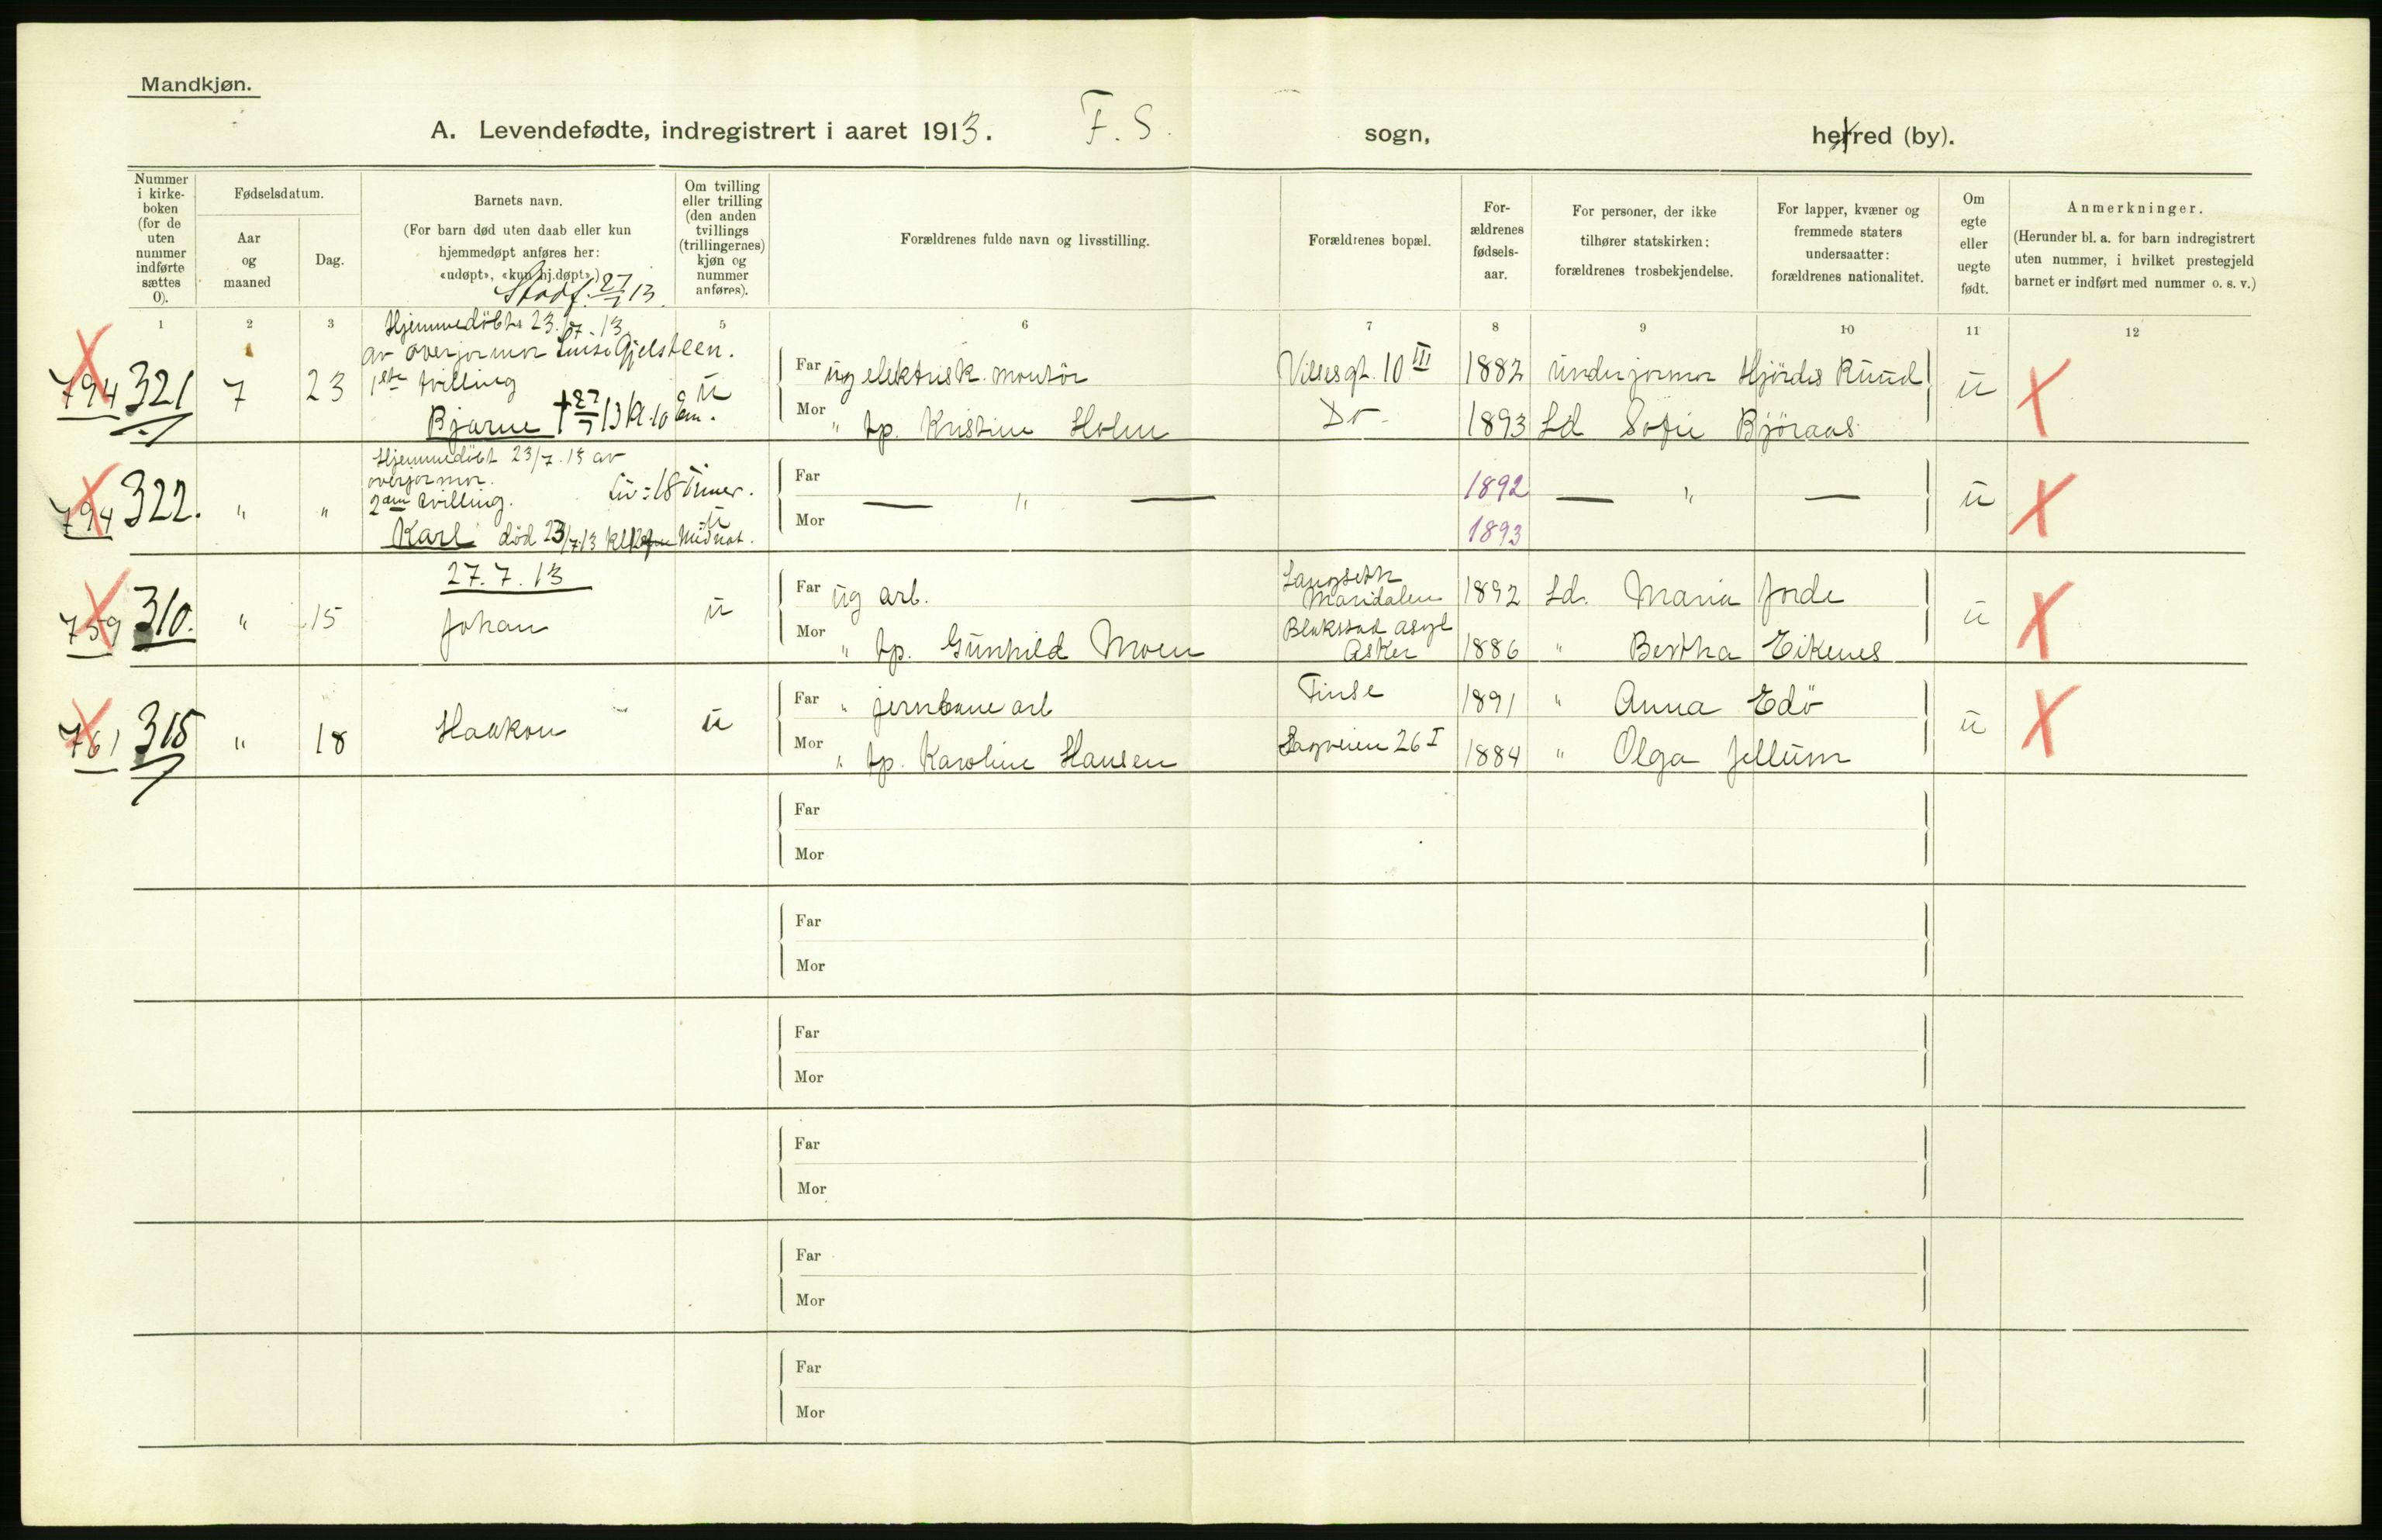 Mandkjøn.
A. Levendefødte, indregistrert i aaret 1913. F. S. sogn, herred (by).
Nummer i kirke-boken (for de uten nummer indførte sættes 0).
Fødselsdatum.
Aar og maaned
Dag.
Barnets navn.
(For barn død uten daab eller kun hjemmedøpt anføres her: «udøpt», «kun hj.døpt».)
Stadf. 27/7 13
Om tvilling eller trilling (den anden tvillings (trillingernes) kjøn og nummer anføres).
Forældrenes fulde navn og livsstilling.
Forældrenes bopæl.
For-ældrenes fødsels-aar.
For personer, der ikke tilhører statskirken: forældrenes trosbekjendelse.
For lapper, kvæner og fremmede staters undersaatter: forældrenes nationalitet.
Om egte eller uegte født.
Anmerkninger.
(Herunder bl. a. for barn indregistrert uten nummer, i hvilket prestegjeld barnet er indført med nummer o. s. v.)
1 2 3 5 6 7 8 9 10 11 12
Hjemmedöbt 23/7.13
av overjormor Gjelsteen.
1ste tvilling
794 321 7 23 Bjarne † 27/7 13 Kl. 10 Em. u
Far ug elektrisk. montör 1882 underjormor Hjördis Ruud u X
Mor " tp. Kristine Holm Do 1893 Ld Sofie Björaas
Hjemmedöbt 23/7.13 av
overjormor.
2den tvilling. Liv: 18 Timer.
794 322. " " Karl död 23/7.13 Kl. 12 Midnat. u
Far — " — 1892 — " — u X
Mor 1893
27.7.13
759 310. " 15 Johan u
Far ug arb. Langseth Maridalen 1892 Ld. Maria Jorde u X
Mor " tp. Gunhild Moen Blakstad asyl Asker 1886 " Bertha Eikenes
761 315 " 18 Haakon u
Far " jernbane arb Finse 1891 " Anna Edö u X
Mor " tp. Karoline Hansen Sagveien 26 I 1884 " Olga Jellum
Far
Mor
Far
Mor
Far
Mor
Far
Mor
Far
Mor
Far
Mor